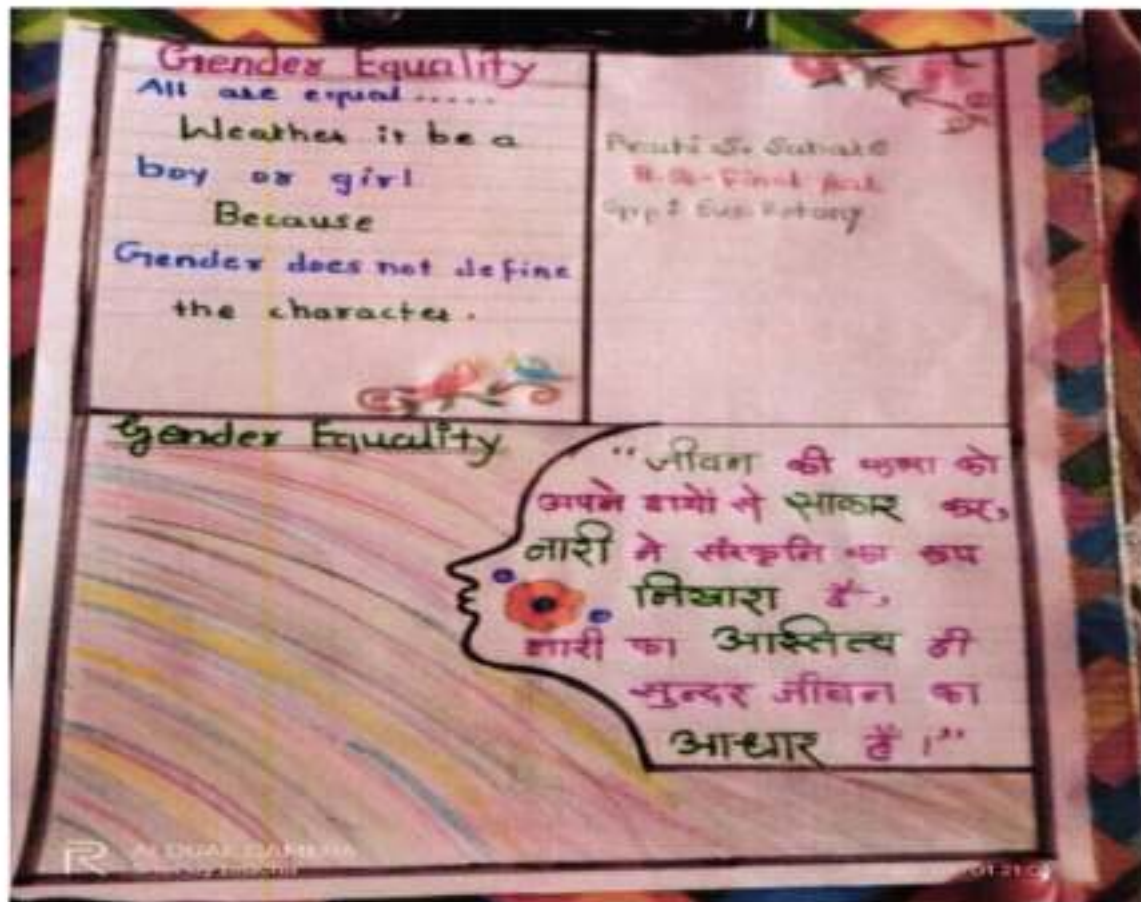 Gender Equality
All are equal.....
Weather it be a
boy or girl
Because
Gender does not define
the character.
Gender Equality
"जीवन की कला को
अपने हाथों से साकार कर,
नारी ने संस्कृति का रूप
निखारा है,
नारी का आस्तित्व ही
सुन्दर जीवन का
आधार है।"
AI DUAL CAMERA